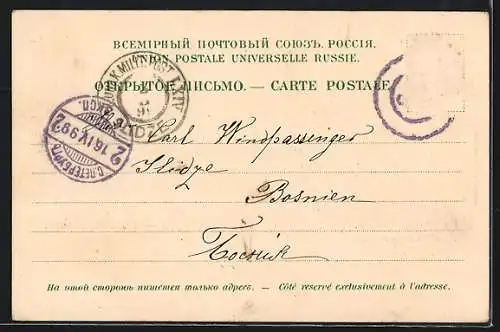 ВСЕМІРНЫЙ ПОЧТОВЫЙ СОЮЗЪ. РОССІЯ.
UNION POSTALE UNIVERSELLE RUSSIE.
ОТКРЫТОЕ ПИСЬМО. — CARTE POSTALE
K.U.K. MILIT. POST LXIV
ILIDŽE
С.ПЕТЕРБУРГЪ
2 16 IV 99 2
Carl Windpassinger
Ilidze
Bosnien
Боснія
На этой сторонѣ пишется только адресъ. — Côté réservé exclusivement à l'adresse.